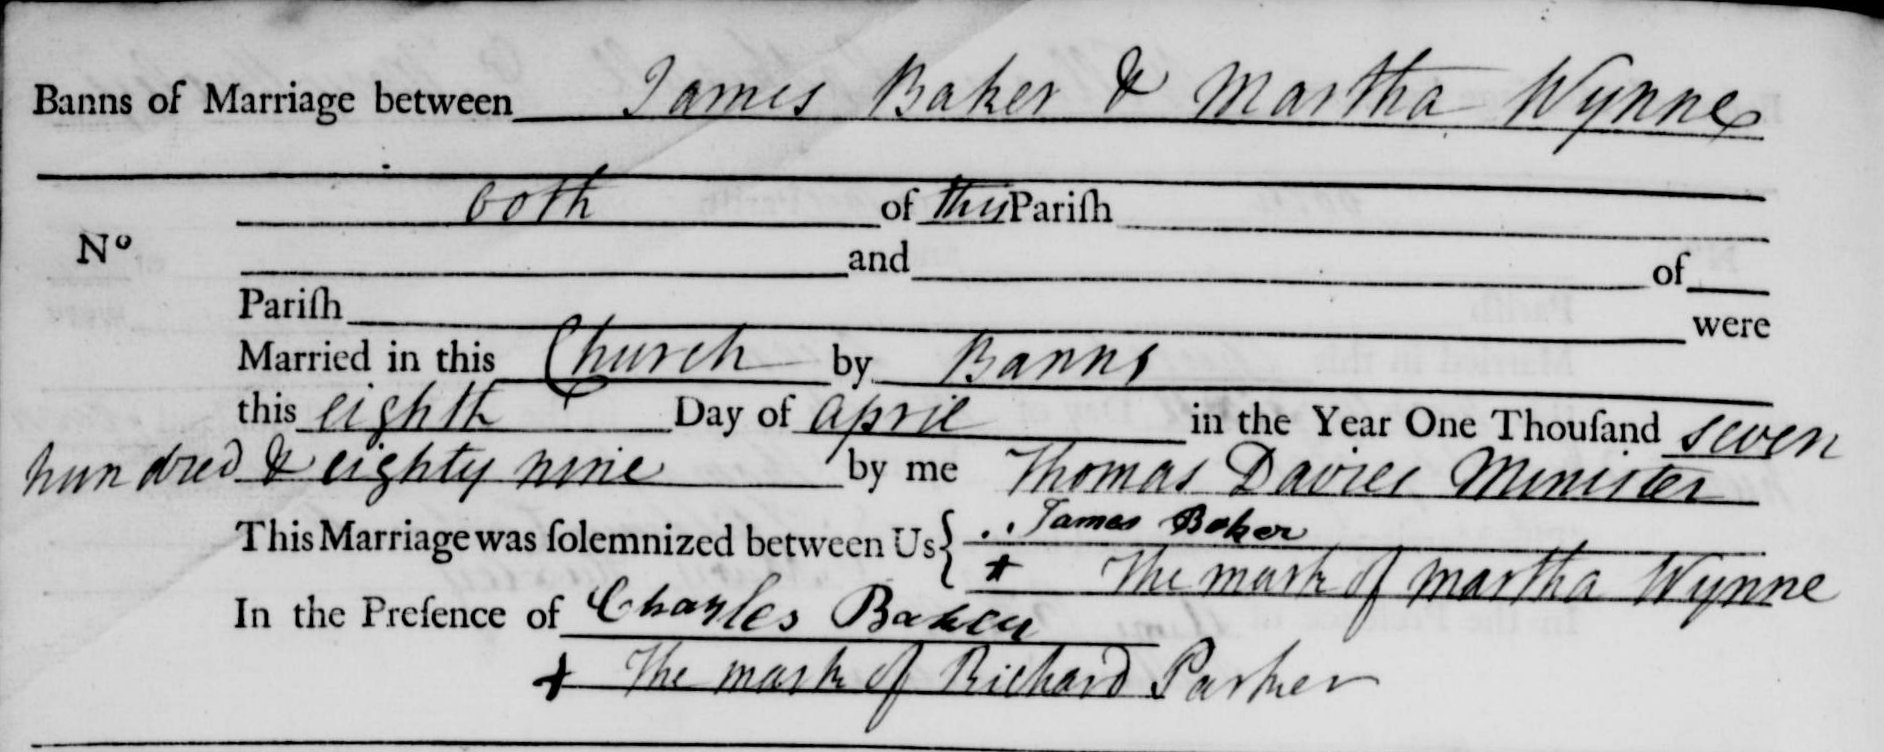 Banns of Marriage between James Baker & Martha Wynne
both of this Pariſh
Nº
and of
Pariſh were
Married in this Church by Banns
this eighth Day of April in the Year One Thouſand seven
hundred & eighty nine by me Thomas Davies Minister
This Marriage was ſolemnized between Us { James Baker
+ The mark of Martha Wynne
In the Preſence of Charles Baker
+ The mark of Richard Parker